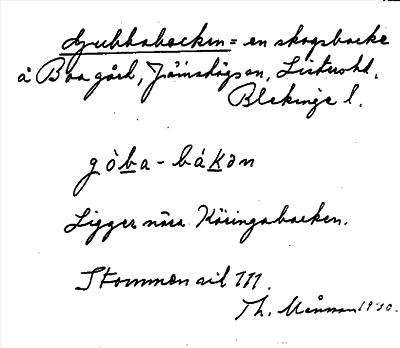 Gubbabacken = en skogsbacke
å Boa gård, Jämshögs sn, Listers hd,
Blekinge l.
gòba - bákən
Ligger nära Käringabacken.
Stommen sid 111.
Th. Månsson 1930.